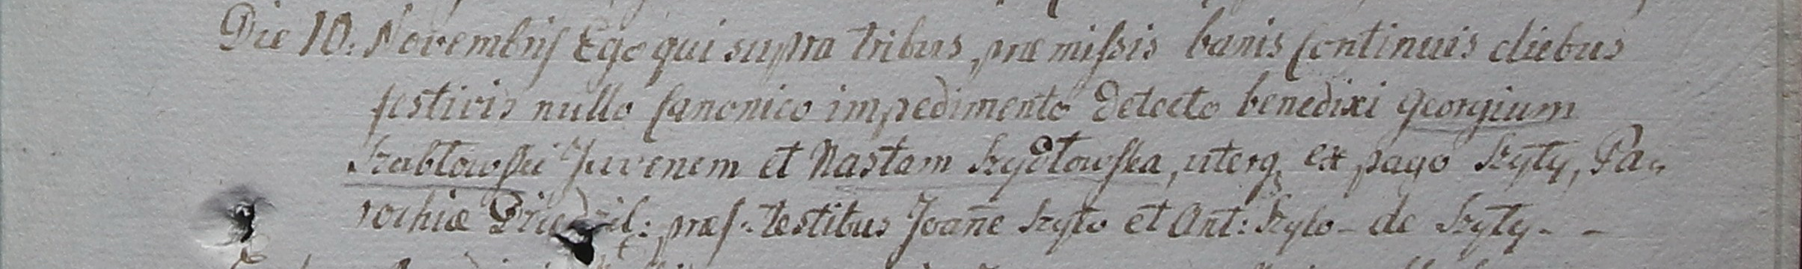 Die 10. Novembris Ego qui supra tribus præmissis banis continuis diebus
festivis nullo Canonico impedimento detecto benedixi Georgium
Szabłowski Juvenem et Nastam Szydłowska, uterq ex pago Szyły, Pa-
rochiæ præs: testibus Joane Szyło et Ant: Szyło - de Szyły - -